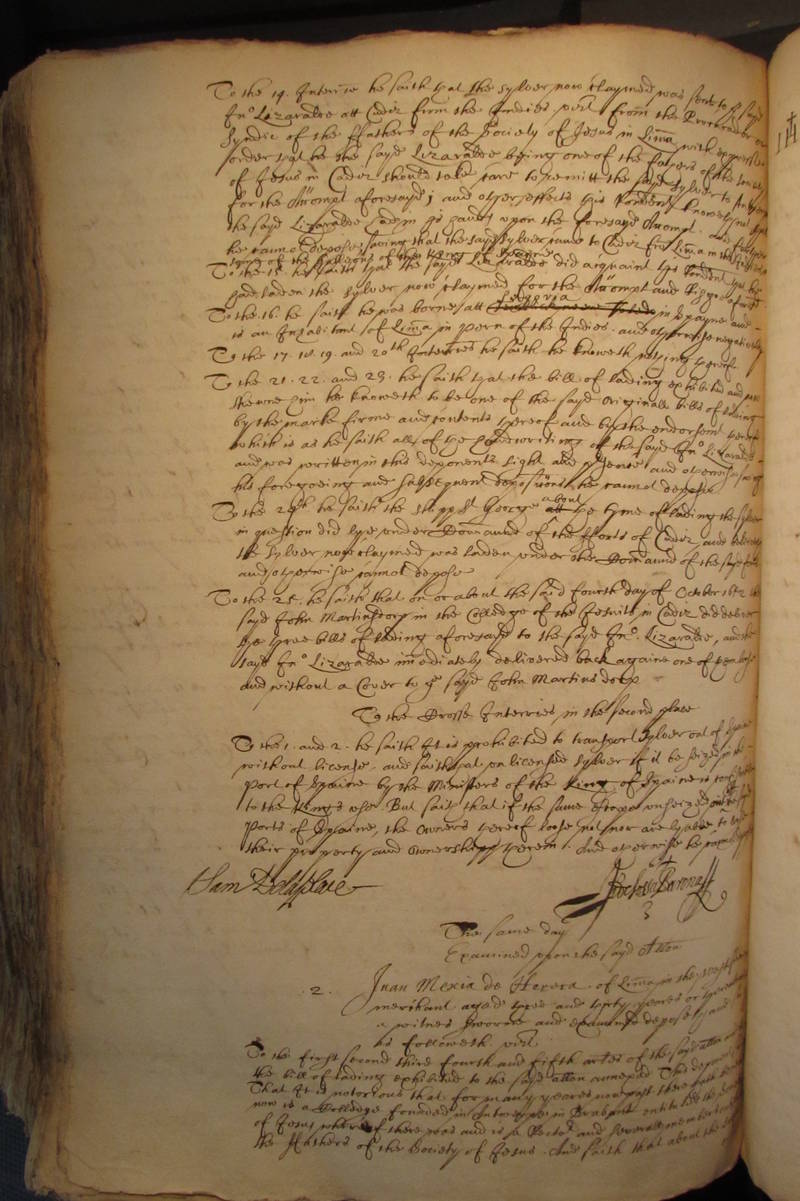 To the 14. Interrie he saith that the sylver now claymed was sent to the sayd
Jno. Lizaradoe att Cadiz from the Indies vizt from the Procurador or
Syndic of the ffathers of the Society of Jesus in Lima with expresse
order that he the sayd Lizaradoe being one of the fathers of the Society
of Jesus in Cadiz should take care to remitt the sayd sylver to Antwerp
for the Accompt aforesayd; and other effects this Rendent knoweth not
the sayd Lizaradoe had in his hands upon the foresayd Accompt. and further
he cannot depose, saving that the sayd sylver came to Cadiz from Lima in the
some of the Galeons of the King of Spaine
To the 15. he saith that the sayd Lizaradoe did acquaint this Rendent that he
had laden the sylver now claymed for the Accompt and Risgo aforesayd
To the 16. he saith he was borne att Segovia in Spayne and
is an Inhabitant of Lima in Peru of the Indies. and otherwise negatively
To the 17. 18. 19. and 20th Interries he saith he knoweth nothing thereof
To the 21. 22. and 23. he saith that the bill of lading exhibited and now
shewne him he knoweth to be one of the sayd originall bills of lading
by the marke firme and contents thereof and by the endorsement thereof
which is as he saith all of the handwriting of the sayd Jno. Lizaradoe
and was written in this deponents sight and presence and otherwise saving
his foregoeing and subsequent depositions he cannot depose
To the 24th he saith the shipp St. George about the tyme of lading the sylver
in question did lye under Command of the fforts of Cadiz and believeth
the sylver now claymed was laden under the Command of the sayd forts
and otherwise cannot depose
To the 25. he saith that on or about the said fourth day of October 1652 the
sayd John Martinsdorp in the Colledge of the Jesuits in Cadiz did deliver
the three bills of lading aforesayd to the sayd Jno. Lizaradoe, and the
sayd Jno. Lizaradoe immediately delivered back againe one of them
and without a Cover to the sayd John Martins dorp
To the Crosse Interries in the second place
To the 1. and 2. he saith It is prohibited to transport sylver out of Spaine
without license. and saith that unlicensed sylver if it be seized in the
Port of Spaine by the Ministers of the King of Spaine is confiscated
to the Kings use. But saith that if the same escape unseized out of the
Ports of Spaine, the Owners thereof loose not nor are lyable to loose
their property and Ownershipp therein. And otherwise he cannot depose
Sam Delaplace
The same day
Examined upon the sayd Allon
.2. Juan Mexia de Herera of Lima in the West Indies
merchant aged three and thirty yeares or thereabouts
a witnes sworne and examined deposeth and
as followeth vizt
To the first second third fourth and fifth artles of the sayd allon and
the bill of lading exhibited to the sayd allon annexed This deponent
That It is notorious that for many yeares now past there hath been
now is a Colledge founded in Antwerpe in Brabant entituled the
of Jesus whereof there was and is a Rector and severall members
the ffathers of the Society of Jesus. And saith that about the